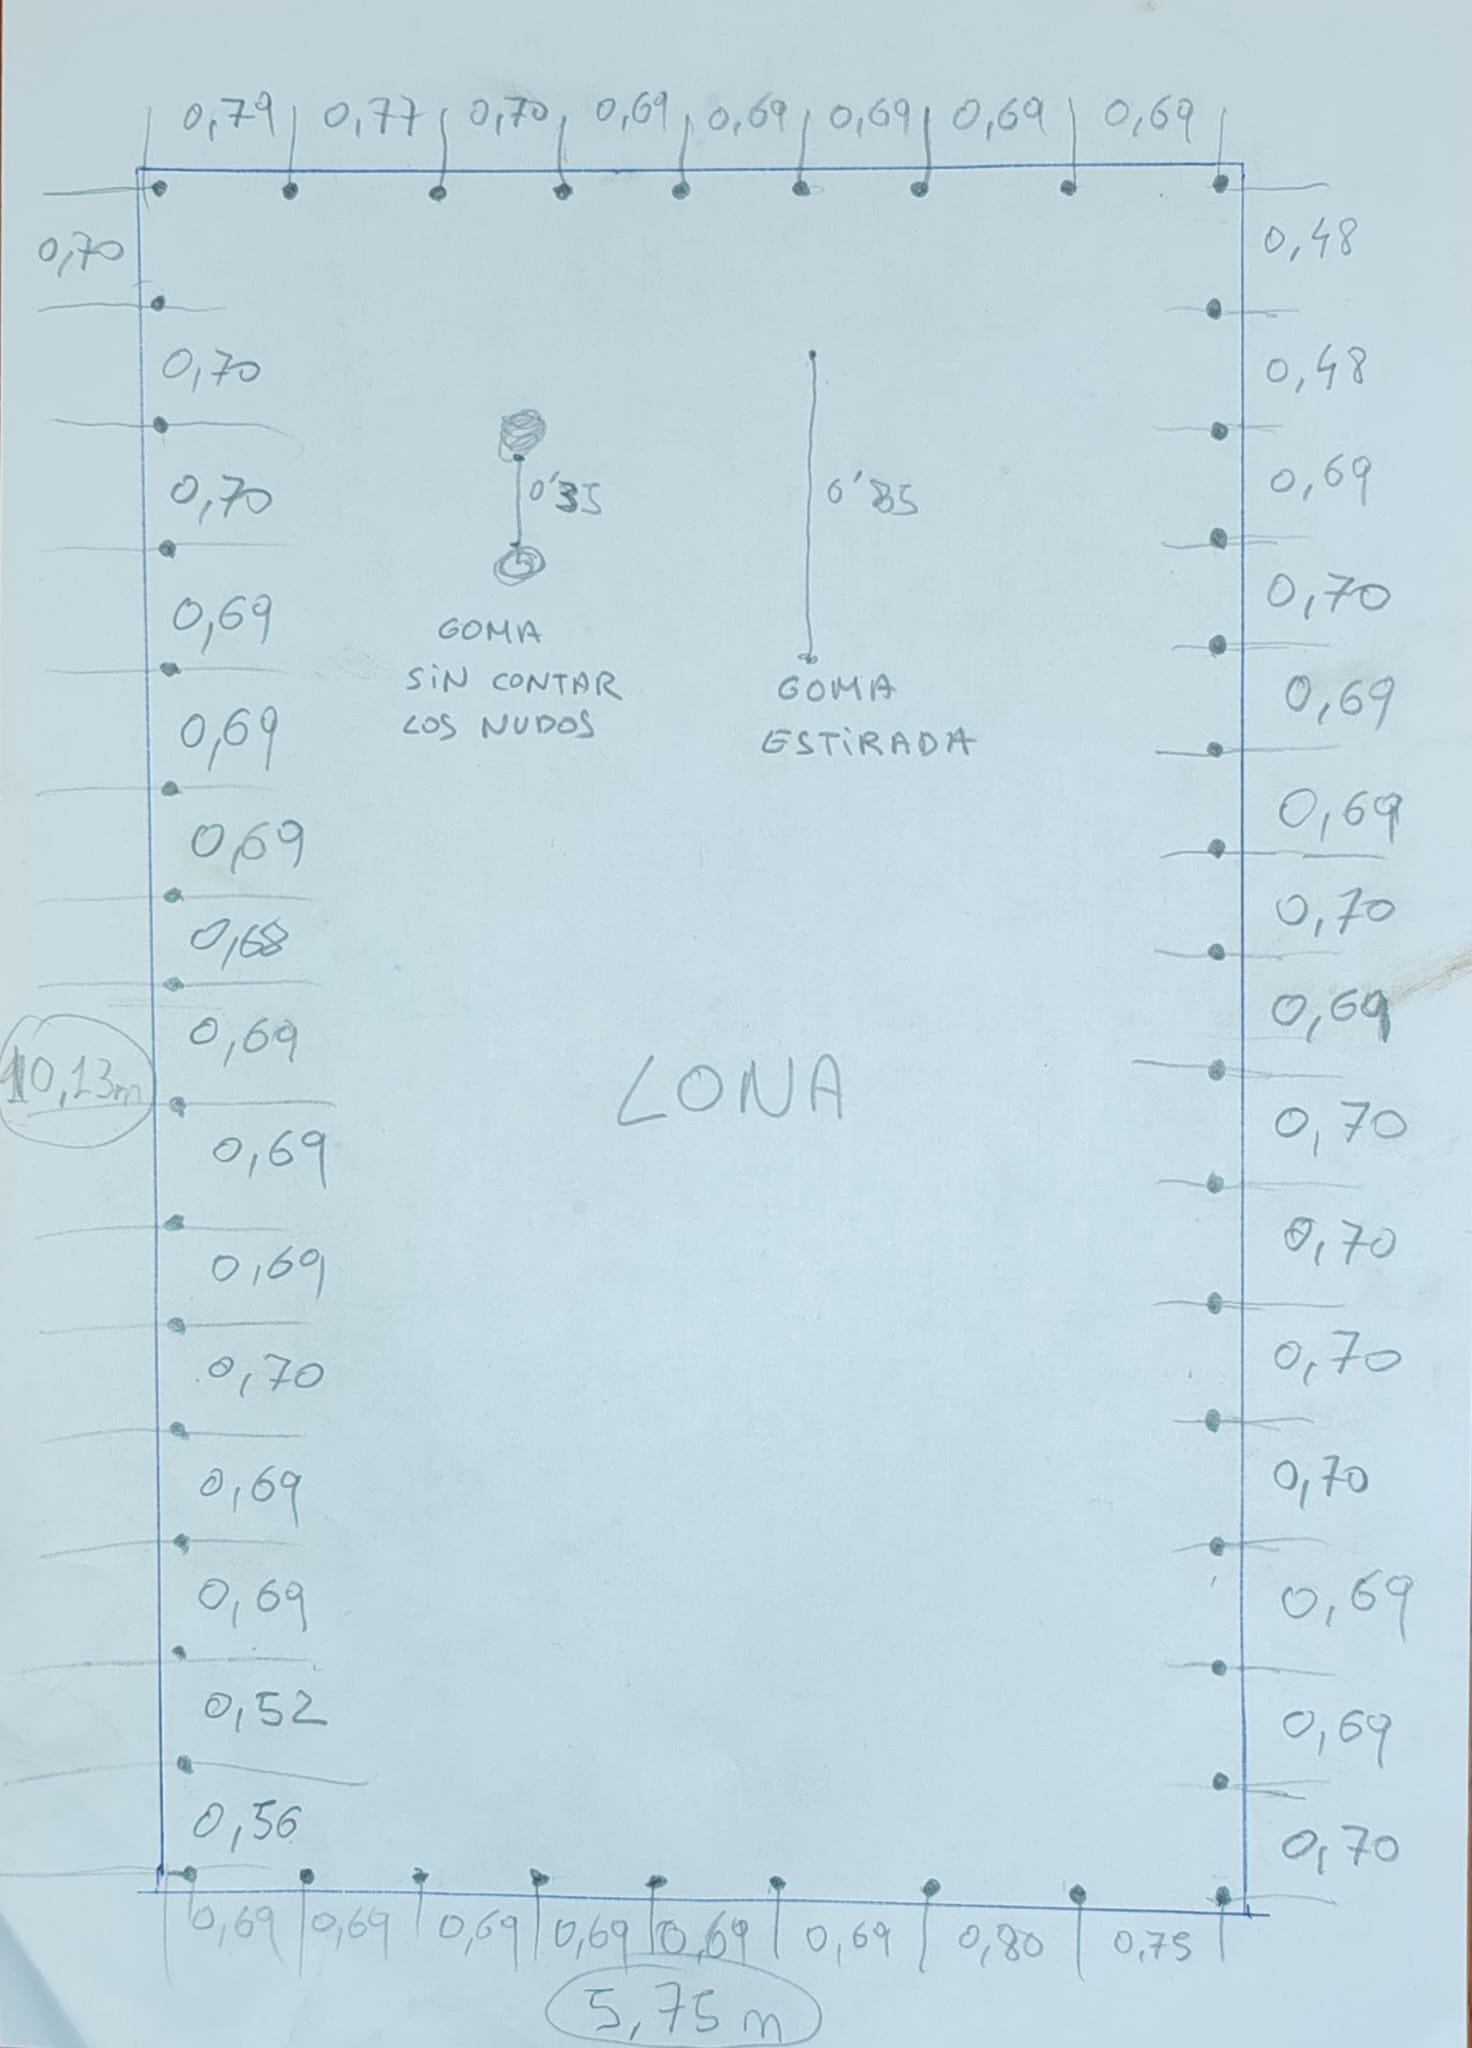 0,79 0,77 0,70 0,69 0,69 0,69 0,69 0,69
0,70
0,70
0,70
0,69
0,69
0,69
0,68
0,69
10,13m
0,69
0,69
0,70
0,69
0,69
0,52
0,56
0'35
GOMA
SiN CONTAR
LOS NUDOS
0'85
GOMA
ESTiRADA
LONA
0,48
0,48
0,69
0,70
0,69
0,69
0,70
0,69
0,70
0,70
0,70
0,70
0,69
0,69
0,70
0,69 0,69 0,69 0,69 0,69 0,69 0,80 0,75
5,75 m